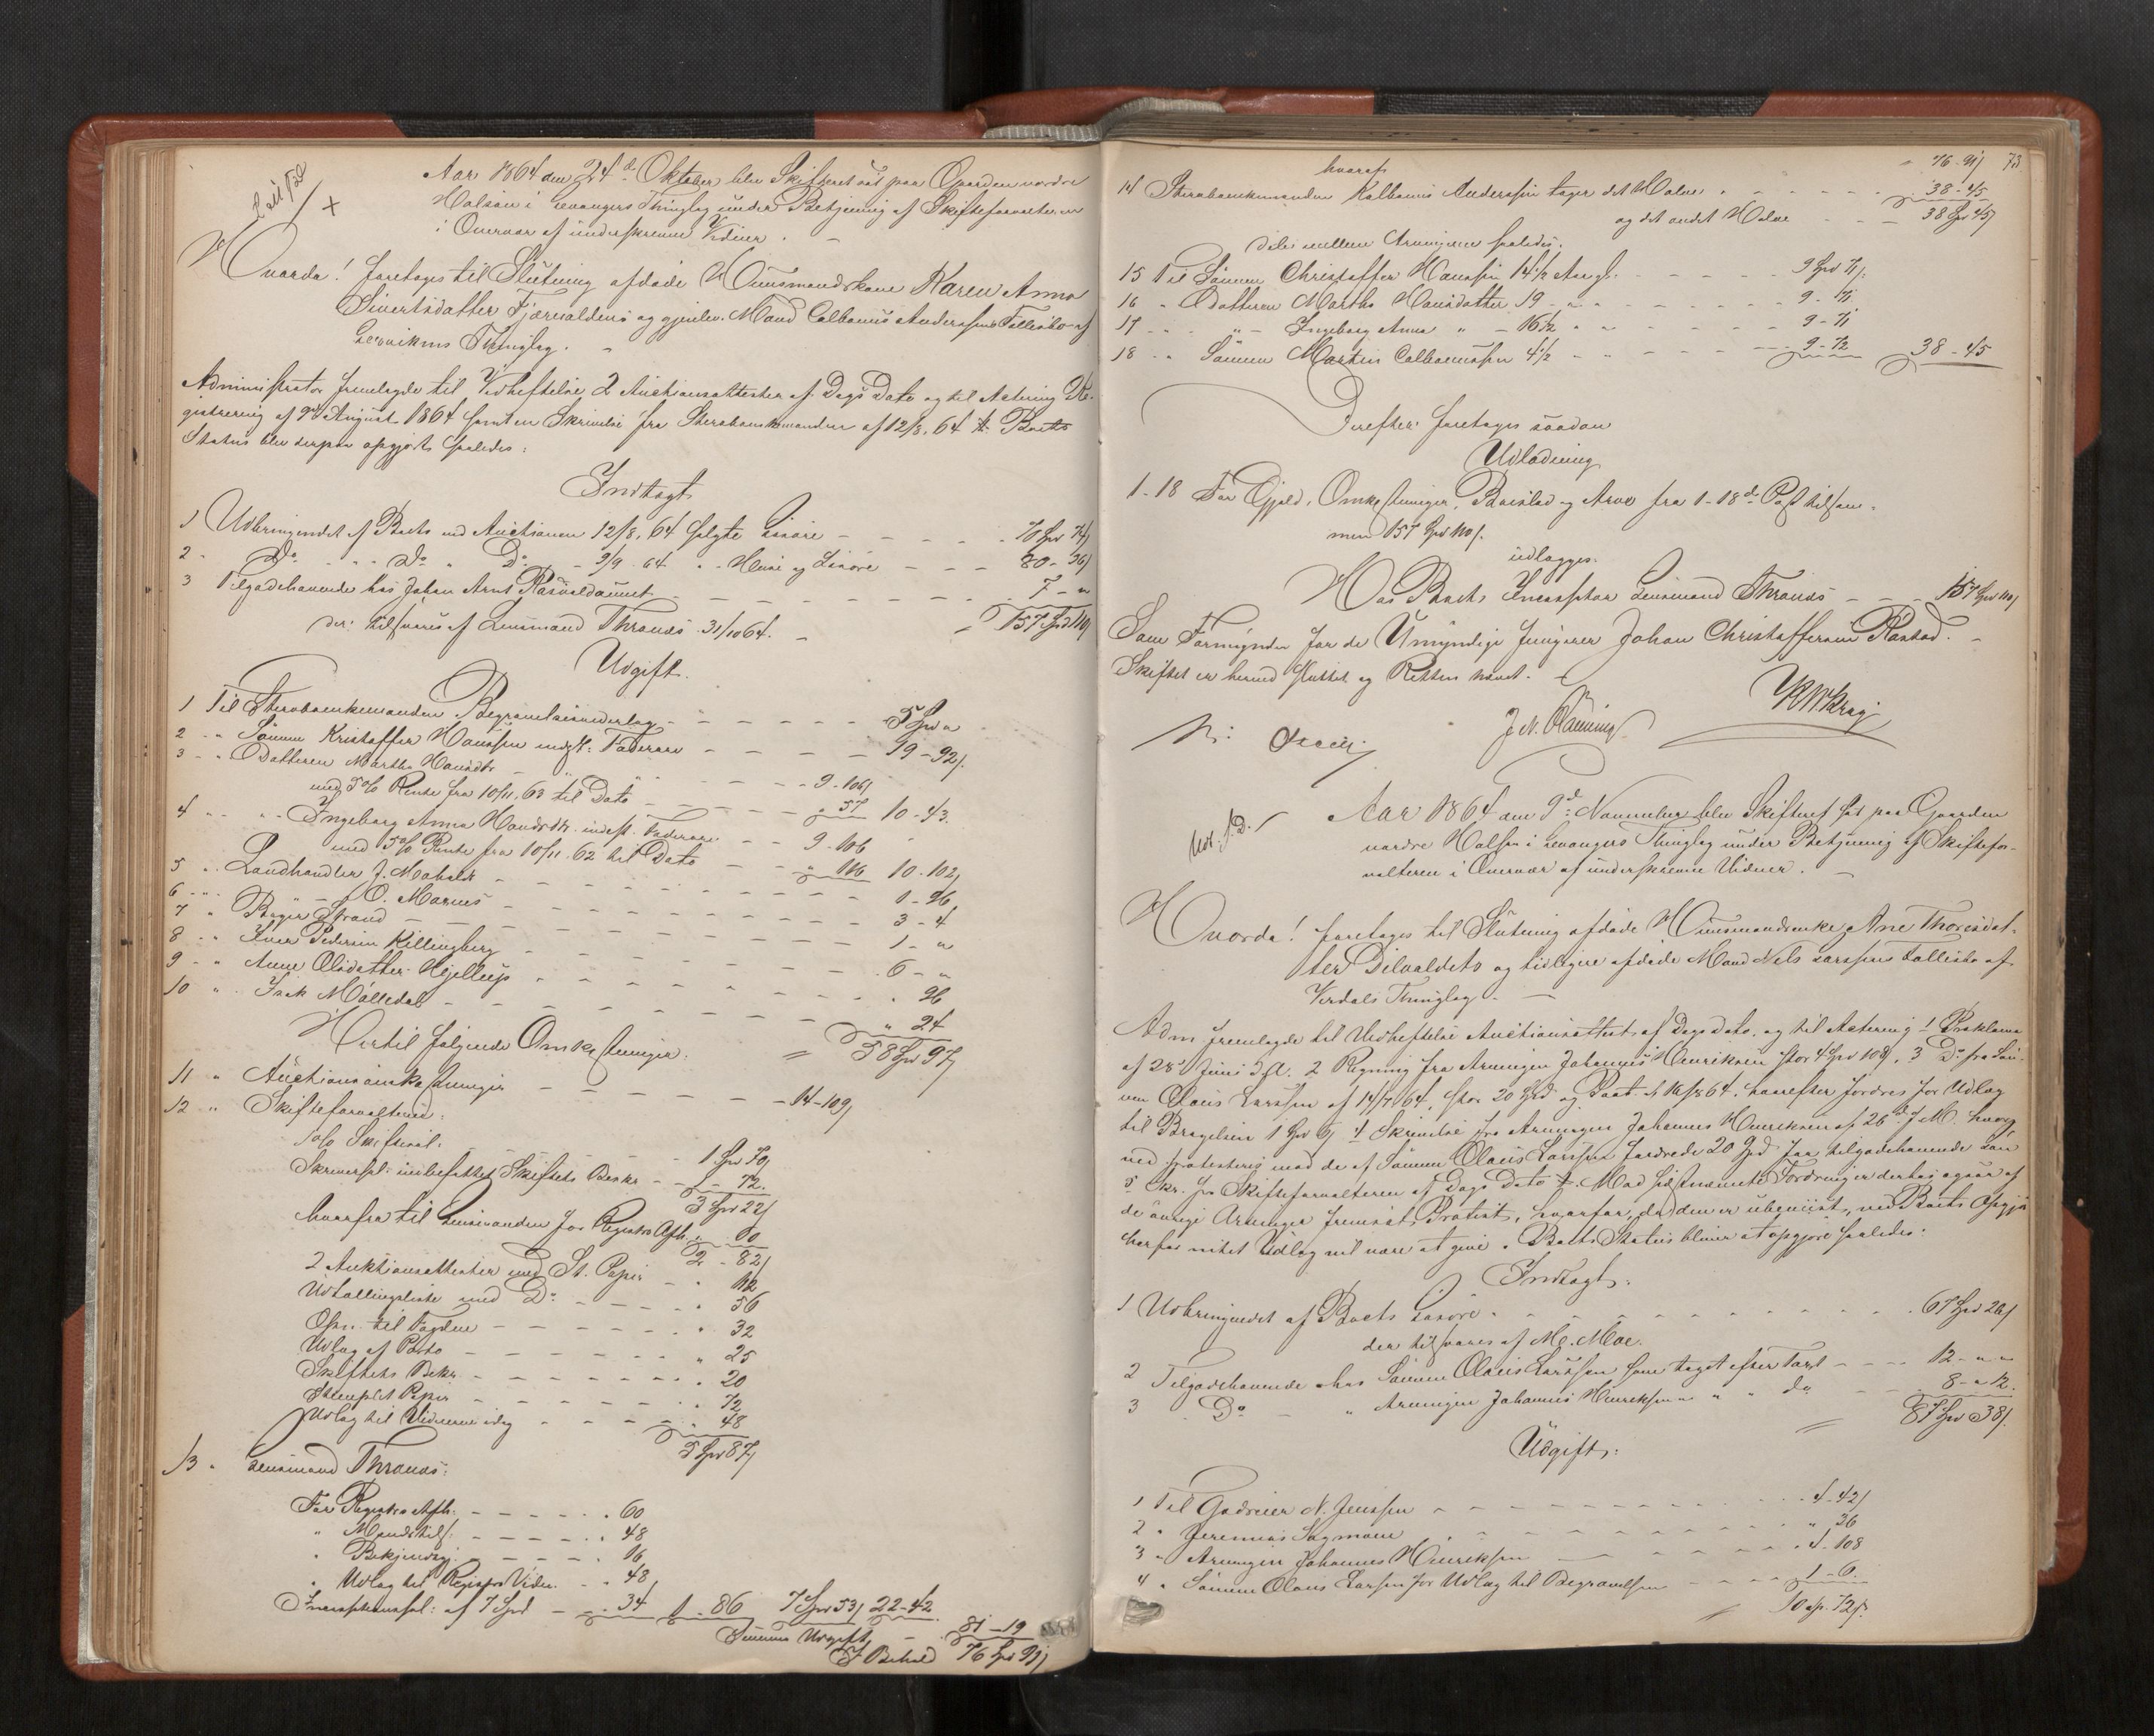 Aar 1864 den 24de Oktober blev Skifteret sat paa Gaarden nordre
Halsan i Levangers Thinglag under Betjening af Skifteforvalteren
i Overvær af underskrevne Vidner.
Hvorda! foretoges til Slutning afdøde Huusmandskone Karen Anna
Sivertsdatter Fjærvaldens og gjenlev. Mand Calbanus Andersens Fællesbo af
Thinglag.
Administrator fremlagde til Vedheftelse 2 Auctionsattester af Dags Dato og til Actering Re-
gistrering af 9de August 1864 samt en Skrivelse fra Sterbboenkemanden af 12/8. 64. Boets
Status blev derpaa opgjort saaledes:
Indtægt
1 Udbringendet af Boets ved Auctionen 12/8. 64 solgte Løsøre - 70 Spd 74
2 - Do - Do - Do - 9/9 64 - Huse og Løsøre - 80 - 36
3 Tilgodehavende hos Johan Arnt - 7 - "
der tilsvares af Lensmand Thronæs 31/10 64. = 157 Spd 110
Udgift.
1 Til Sterbboenkemanden Begravelsesvederlag - 5 Spd "
2 - " Sønnen Kristoffer Hanssen indest: Fædrearv - 19 - 92
3 - " Datteren Martha Hansdtr - " - 9 - 106
med 5 % Rente fra 10/11. 63 til Dato - " 57 10 - 43.
4 - " - Ingeborg Anna Hansdtr. indest. Fædrearv - 9 - 106
med 5 % Rente fra 10/11. 62 til Dato - " 116 10 - 102
5 " Landhandler J. - 1 - 96
6 - " - " - O. - 3 - 4
7 " Birger Strand - 1 - "
8 - " Iver Pedersen Killingberg - 6 - "
9 - " Anne Olsdatter - " 96
10 " Isak Mølledal - " 24
Hertil følgende Omkostninger: = 58 Spd 97
11 " Auctionsomkostninger - 14 - 109
12 " Skifteforvalteren:
% Skiftesal. - 1 Spd 70
Skriversal. indbefattet Skiftets Beskr - 1 - 72.
3 Spd 22
hvorfra til Lensmanden for Registr. Afh. " 60
2 - 82
2 Auktionsattester med St. Papir - " 112
Udtællingsliste med Do - " 56
til Fogden - " 32
Udlæg af Porto - " 25
Skiftets Bekr. - " 20
Stemplet Papir - " 72
Udlæg til Vidnerne idag - " 48
5 Spd 87
13 " Lensmand Thronæs:
For Registr. Afh: - " 60
" Mandstils: - " 48
" Bekjendtgj. - " 16
" Udlæg til Registr. Vidn. - " 48
Incassationssal: af 7 Spd - " 34 1 - 86 7 Spd 53 22 - 42
Summa Udgift - 81 - 19
I Behold 76 Spd 91
" 76 - 91 73
hvoraf
14 Sterbboenkemanden Kalbanus Anderssen tager det Halve - 38 - 45
og det andet Halve - 38 Spd 45
deles mellem Arvingerne saaledes:
15 Til Sønnen Christoffer Hanssen 14 1/2 Aar gl. - 9 Spd 71
16 " Datteren Martha Hansdatter 19 - " - 9 - 71
17 - " - " - Ingeborg Anna " - 16 1/2 - " - 9 - 71
18 - " Sønnen Martin Calbanussen 4 1/2 - " - 9 - 72 38 - 45
Derefter foretoges saadan
Udlodning
1-18 For Gjæld, Omkostninger, Boeslod og Arv fra 1-18de Post tilsam-
men 157 Spd 110
udlægges:
Hos Boets Incassator Lensmand Thronæs - 157 Spd 110
Som Formynder for de Umyndige fungerer Johan Christoffersen
Skiftet er hermed sluttet og Retten hævet.
Aar 1864 den 9de November blev Skifteret sat paa Gaarden
nordre Halsan i Levangers Thinglag under Betjening af Skiftefor-
valteren i Overvær af underskrevne Vidner.
Hvorda! foretoges til Slutning afdøde Huusmandsenke Ane Thoresdat-
ter og tidligere afdøde Mand Nels Larssens Fællesbo af
Værdals Thinglag.
Adm fremlagde til Vedheftelse Auctionsattest af Dags Dato, og til Actering 1 Proklama
af 28de Juni d. A. 2 Regning fra Arvingen Johannes Henriksen stor 4 Spd 108, 3 Do fra Søn-
nen Olaus Larssen af 14/7 64, stor 20 Spd og Paat. af 16/8 64, hvorefter fordres for Udlæg
til 1 Spd 6 4 Skrivelse fra Arvingen Johannes Henriksen af 26de f. M. hvor-
ved protesteres mod de af Sønnen Olaus Larssen fordrede 20 Spd for tilgodehavende Løn
5 Skr. fra Skifteforvalteren af Dags Dato. Mod sidstnævnte Fordring er derhos ogsaa af
de øvrige Arvinger fremsat Protest, hvorfor, da den er ubeviist, ved Boets Opgjør
herfor intet Udlæg vil være at give. Boets Status bliver at opgjøre saaledes:
Indtægt:
1 Udbringendet af Boets Løsøre - 67 Spd 26
der tilsvares af
2 Tilgodehavende hos Sønnen Olaus Larssen som taget efter Taxt - 12 - " "
3 Do - " Arvingen Johannes Henriksen " " do - 8 - " 12.
= 87 Spd 38
Udgift:
1 Til N. Jenssen - 4 - 42
2 " Jeremias - " 36
3 " Arvingen Johannes Henriksen - 4 - 108
4 " Sønnen Olaus Larssen for Udlæg til Begravelsen - 1 - 6
= 10 Sp. 72